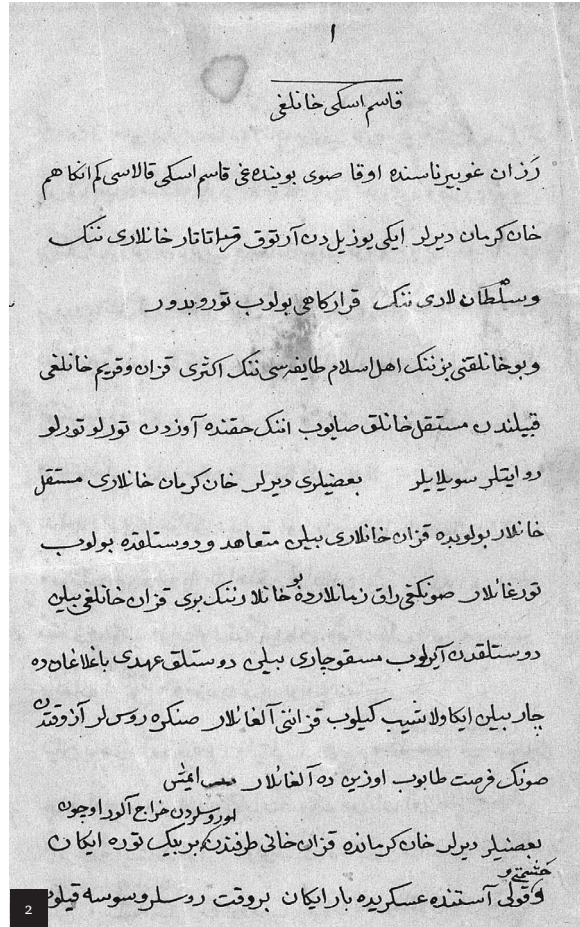 ١
قاسم اسكی خانلغی
رَزان غوبیرناسنده اوقا صوی بوینده‌غی قاسم اسكی قالاسی كم انكا هم
خان كرمان دیرلر ایكی یوز یل دن آرتوق قریم تاتار خانلاری ننك
و سلطان لاری ننك قراركاهی بولوب توروبدور
و بو خانلقنی بزننك اهل اسلام طایفه‌سی ننك اكثری قزان و قریم خانلغی
قبیلندن مستقل خانلق صایوب اننك حقنده آوزدن تورلو تورلو
روایتلر سویلایلر بعضیلری دیرلر خان كرمان خانلاری مستقل
خانلار بولوبده قزان خانلاری بیلن متعاهد و دوستلقده بولوب
تورغانلار صونكغی راق زمانلارده بو خانلارننك بری قزان خانلغی بیلن
دوستلقدن آیرلوب مسقو چاری بیلن دوستلق عهدی باغلاغان ده
چار بیلن ایكاولاشیب كیلوب قزاننی آلغانلار صنكره روس لر آز وقتدن
صونك فرصت طابوب اوزین ده آلغانلار ایمش
بعضیلر دیرلر خان كرمانده قزان خانی طرفندن اوروسلردن خراج آلور اوچون بر بیك توره ایكان
حشمتی و قولی آستنده عسكریده بار ایكان بر وقت روسلر وسوسه قیلوب
2